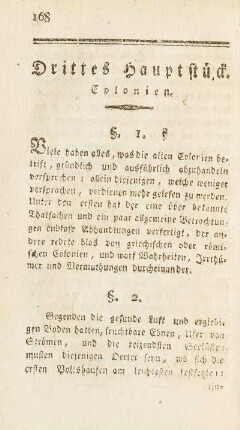 168
Drittes Hauptstück.
Colonien.
§. 1.
Viele haben alles, was die alten Colonien be-
trift, gründlich und ausführlich abzuhandeln
versprochen: allein diejenigen, welche weniger
versprachen, verdienen mehr gelesen zu werden.
Unter den ersten hat der eine über bekannte
Thatsachen und ein paar allgemeine Betrachtun-
gen endlose Abhandlungen verfertigt, der an-
dere redete blos von griechischen oder römi-
schen Colonien, und warf Wahrheiten, Irrthü-
mer und Vermuthungen durcheinander.
§. 2.
Gegenden die gesunde Luft und ergiebi-
gen Boden hatten, fruchtbare Ebnen, Ufer von
Strömen, und die reizendsten Seeküsten
musten diejenigen Oerter seyn, wo sich die
ersten Volkshaufen am leichtesten festsetzten: